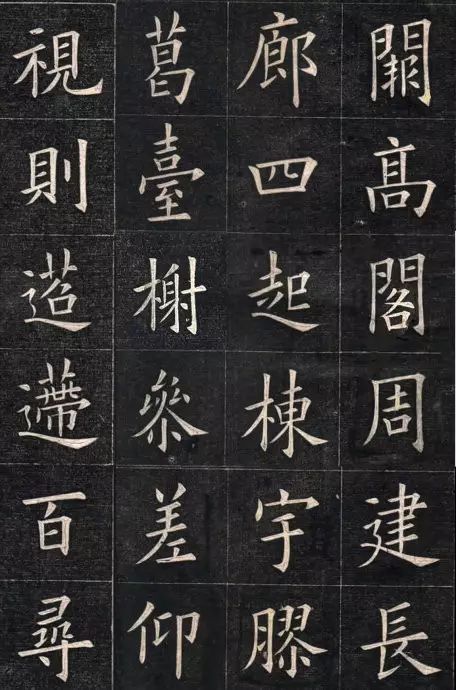 闕髙閣周建長
廊四起棟宇膠
葛臺榭叅差仰
視則迢遰百尋